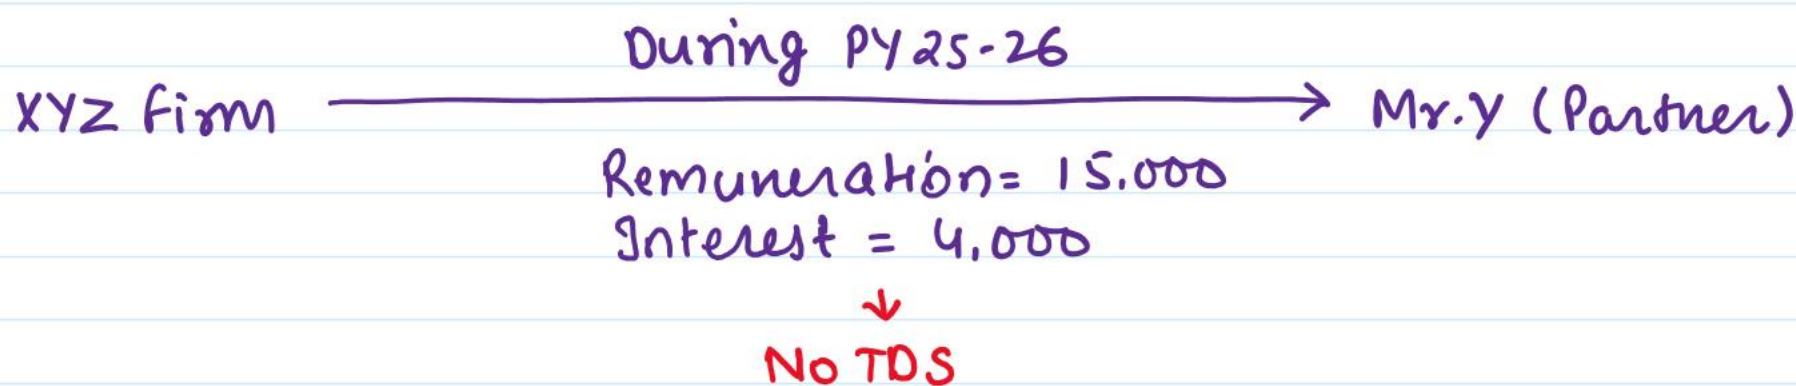 During PY25-26
XYZ Firm → Mr.Y (Partner)
Remuneration= 15.000
Interest = 4,000
↓
No TDS